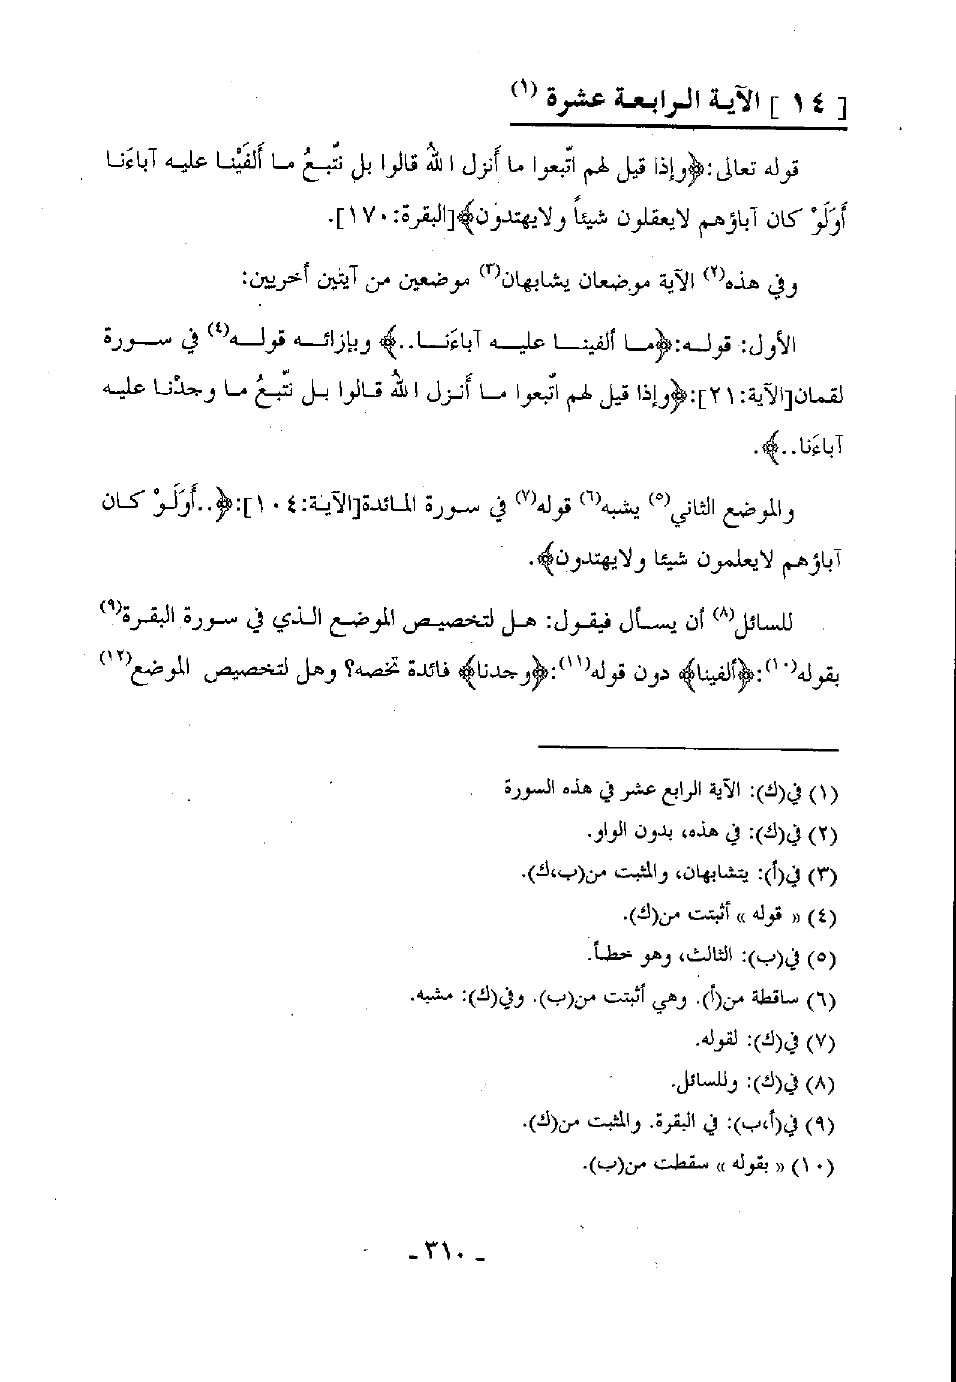 [ ١٤ ] الآية الرابعة عشرة (١)
قوله تعالى:﴿وإذا قيل لهم اتّبعوا ما أنزل الله قالوا بل نتّبعُ ما ألفَيْنا عليه آباءَنا
أوَلَوْ كان آباؤهم لايعقلون شيئاً ولايهتدون﴾[البقرة:١٧٠].
وفي هذه(٢) الآية موضعان يشابهان(٣) موضعين من آيتين أخريين:
الأول: قوله:﴿ما ألفينا عليه آباءَنا..﴾ وبإزائه قوله(٤) في سورة
لقمان[الآية:٢١]:﴿وإذا قيل لهم اتّبعوا ما أنزل الله قالوا بل نتّبعُ ما وجدْنا عليه
آباءَنا..﴾.
والموضع الثاني(٥) يشبه(٦) قوله(٧) في سورة المائدة[الآية:١٠٤]:﴿..أوَلَوْ كان
آباؤهم لايعلمون شيئا ولايهتدون﴾.
للسائل(٨) أن يسأل فيقول: هل لتخصيص الموضع الذي في سورة البقرة(٩)
بقوله(١٠):﴿ألفينا﴾ دون قوله(١١):﴿وجدنا﴾ فائدة تخصه؟ وهل لتخصيص الموضع(١٢)
(١) في(ك): الآية الرابع عشر في هذه السورة
(٢) في(ك): في هذه، بدون الواو.
(٣) في(أ): يتشابهان، والمثبت من(ب،ك).
(٤) « قوله » أثبتت من(ك).
(٥) في(ب): الثالث، وهو خطأ.
(٦) ساقطة من(أ). وهي أثبتت من(ب). وفي(ك): مشبه.
(٧) في(ك): لقوله.
(٨) في(ك): وللسائل.
(٩) في(أ،ب): في البقرة. والمثبت من(ك).
(١٠) « بقوله » سقطت من(ب).
ـ ٣١٠ ـ